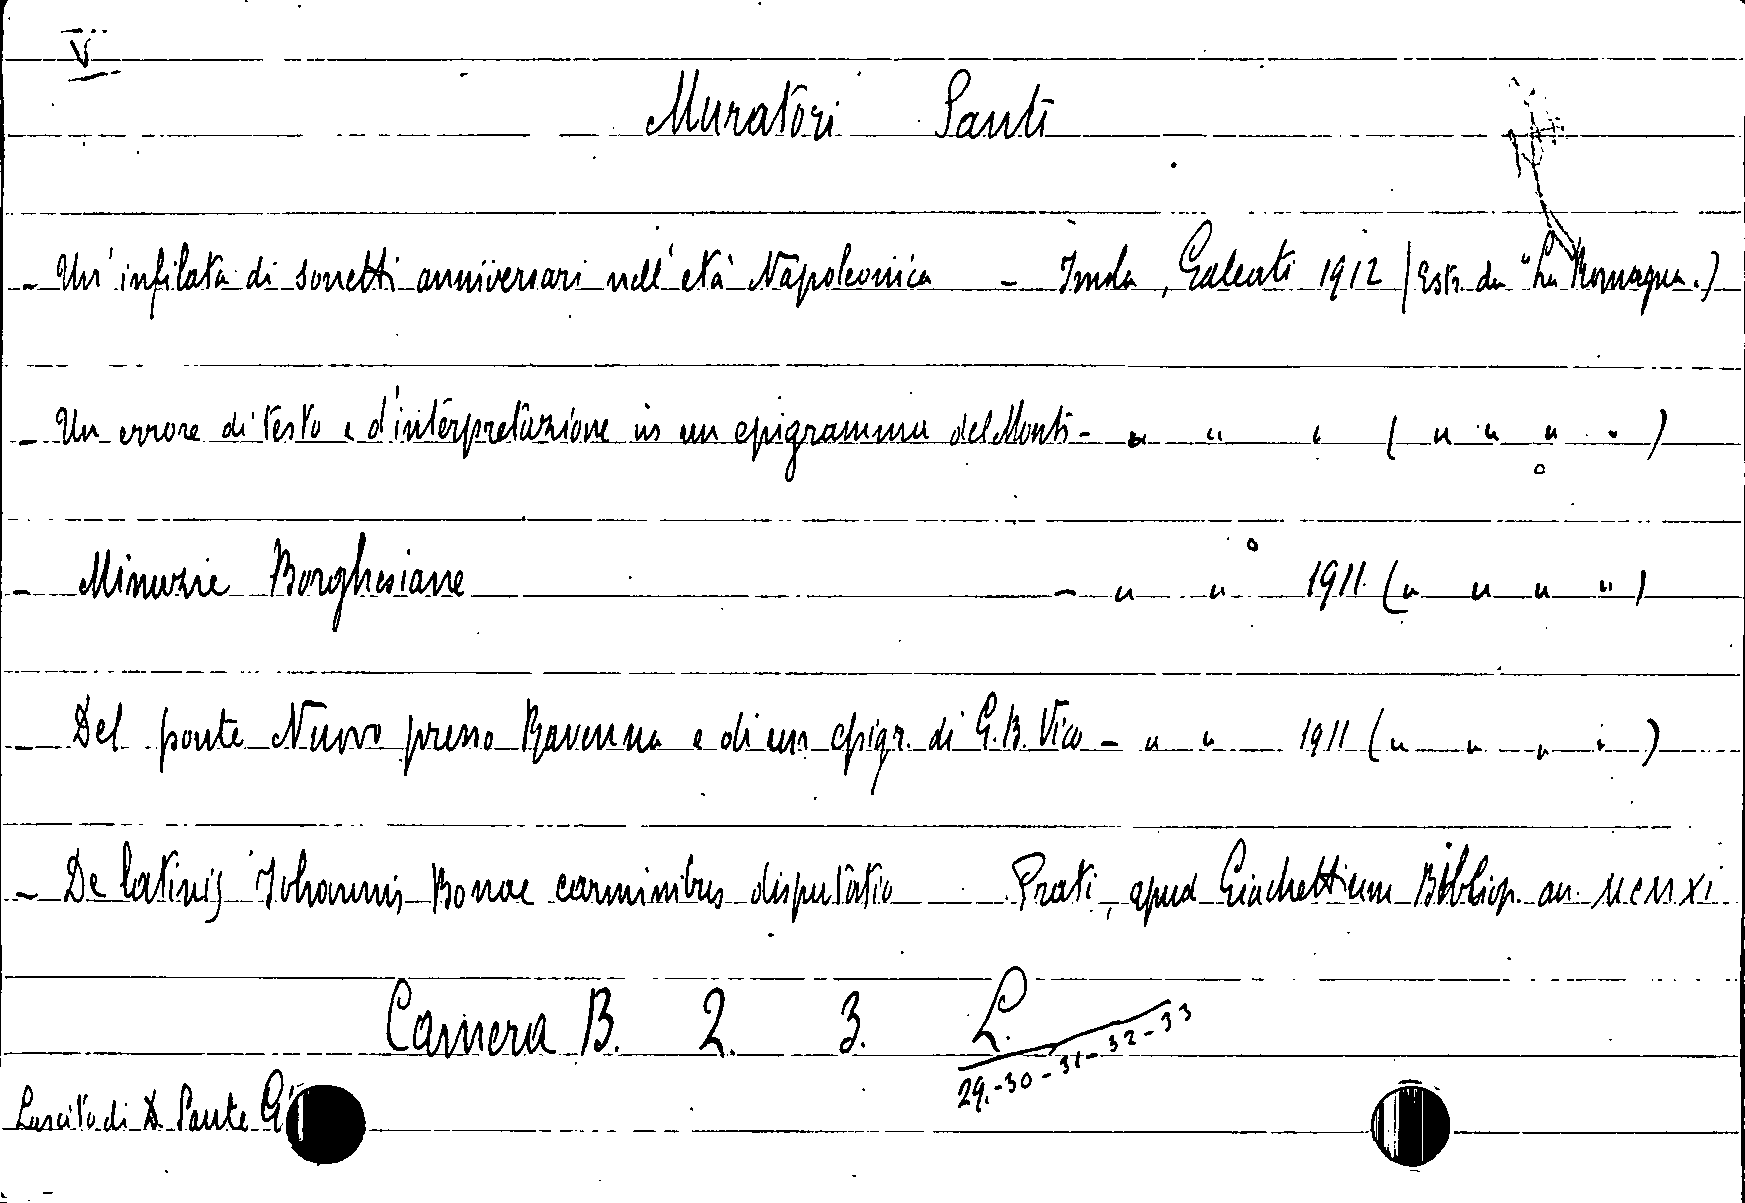 V
Muratori Santi
- Un'infilata di sonetti anniversari nell'età Napoleonica - Imola, Galeati 1912 (Estr. da "La Romagna.)
- Un errore di testo e d'interpretazione in un epigramma del Monti - " " " ( " " " " )
- Minuzie Borghesiane - " " 1911 ( " " " " )
- Del ponte Nuovo presso Ravenna e di un epigr. di G.B. Vico - " " 1911 ( " " " " )
- De latinis Iohannis Bonae carminibus disputatio Prati, apud Giachettium Bibliop. an. MCMXI
Camera B. 2. 3. L.
29.-30-31-32-33
Lascito di D. Sante